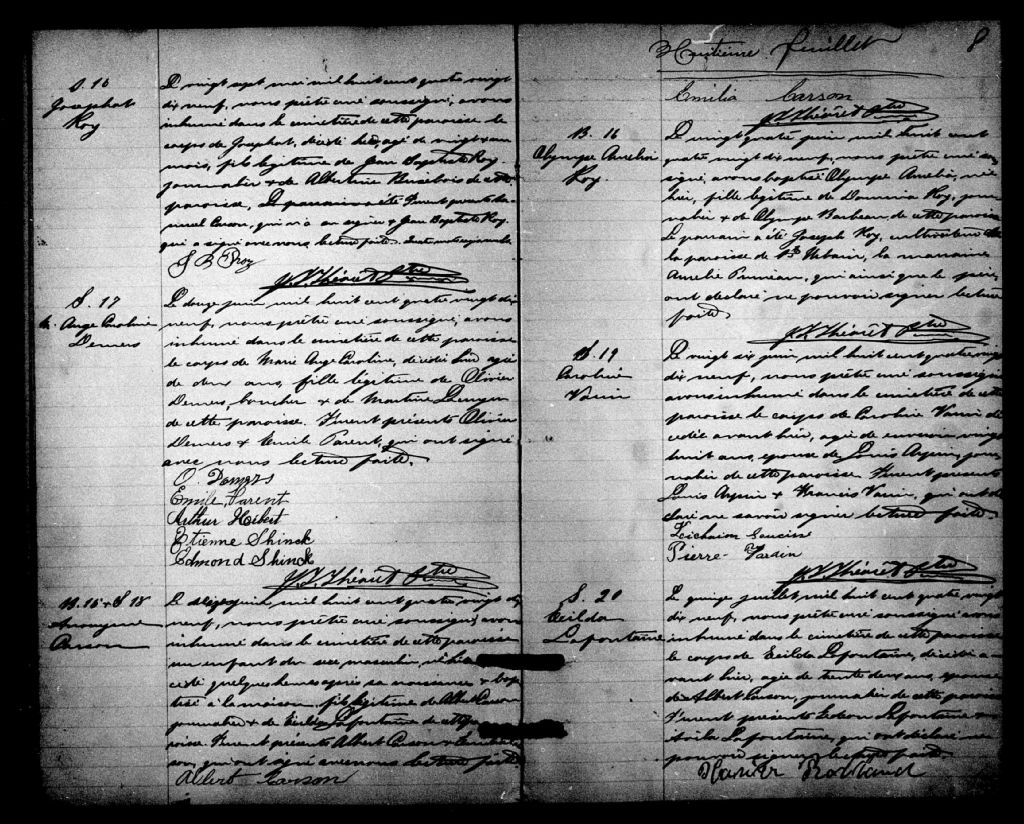 S. 16
Josephat
Roy
Le vingt sept mai mil huit cent quatre vingt
dix neuf, nous prêtre curé soussigné, avons
inhumé dans le cimetière de cette paroisse le
corps de Josephat, décédé hier, âgé de vingt un
mois, fils légitime de Jean Baptiste Roy
journalier & de Albertine de cette
paroisse. Furent présents
Carson, qui n'a su signer & Jean Baptiste Roy
qui a signé avec nous lecture faite.
J B Roy
J. T. Théoret Ptre
S. 17
M. Ange Caroline
Demers
Le douze juin mil huit cent quatre vingt dix
neuf, nous prêtre curé soussigné, avons
inhumé dans le cimetière de cette paroisse
le corps de Marie Ange Caroline, décédée hier âgée
de deux ans, fille légitime de Olivier
Demers, boucher & de Martine
de cette paroisse. Furent présents Olivier
Demers & Emile Parent, qui ont signé
avec nous lecture faite.
O. Demers
Emile Parent
Arthur Hébert
Etienne Shinck
Edmond Shinck
J. T. Théoret Ptre
B. 15 & S 18
Anonyme
Carson
Le juin mil huit cent quatre vingt dix
neuf, nous prêtre curé soussigné, avons
inhumé dans le cimetière de cette paroisse
un enfant du sexe masculin, né hier
cédé quelques heures après sa naissance & bap
tisé à la maison, fils légitime de Albert Carson
journalier & de Exilda Lafontaine de cette pa
roisse. Furent présents Albert Carson & Emilia Car
son, qui ont signé avec nous lecture faite
Albert Carson
Huitième feuillet 8
Emilia Carson
J. T. Théoret Ptre
B. 16
Olympe Aurelie
Roy.
Le vingt quatre juin mil huit cent
quatre vingt dix neuf, nous prêtre curé sous
signé, avons baptisé Olympe Aurelie, née
hier, fille légitime de Damina Roy, jour
nalier & de Olympe Barbeau de cette paroisse
Le parrain a été Joseph Roy, cultivateur de
la paroisse de St Urbain, la marraine
Aurelie Primeau, qui ainsi que le père,
ont déclaré ne pouvoir signer lecture
faite.
J. T. Théoret Ptre
S. 19
Caroline
Vanier
Le vingt six juin, mil huit cent quatre vingt
dix neuf, nous prêtre curé soussigné
avons inhumé dans le cimetière de cette
paroisse le corps de Caroline Vanier dé
cédée avant hier, âgée de environ vingt
huit ans, épouse de Louis Arquin, jour
nalier de cette paroisse. Furent présents
Louis Arquin & Francis Vanier, qui ont dé
claré ne savoir signer lecture faite.
Pierre Jardin
J. T. Théoret Ptre
S. 20
Exilda
Lafontaine
Le quinze juillet mil huit cent quatre vingt
dix neuf, nous prêtre curé soussigné avons
inhumé dans le cimetière de cette paroisse
le corps de Exilda Lafontaine, décédée a
vant hier, âgée de trente deux ans, épouse
de Albert Carson, journalier de cette paroisse
Furent présents Gédéon Lafontaine &
Lafontaine, qui ont déclaré ne
pouvoir signer lecture faite.